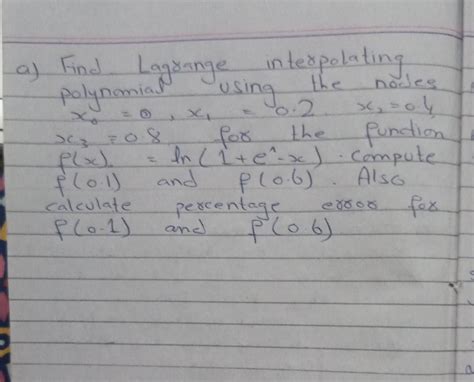 a) Find Lagrange interpolating
polynomial using the nodes
x₀ = 0, x₁ = 0.2 x₂ = 0.4
x₃ = 0.8 for the function
f(x) = ln(1+e^-x). compute
f(0.1) and f(0.6). Also
calculate percentage error for
f(0.1) and f(0.6)